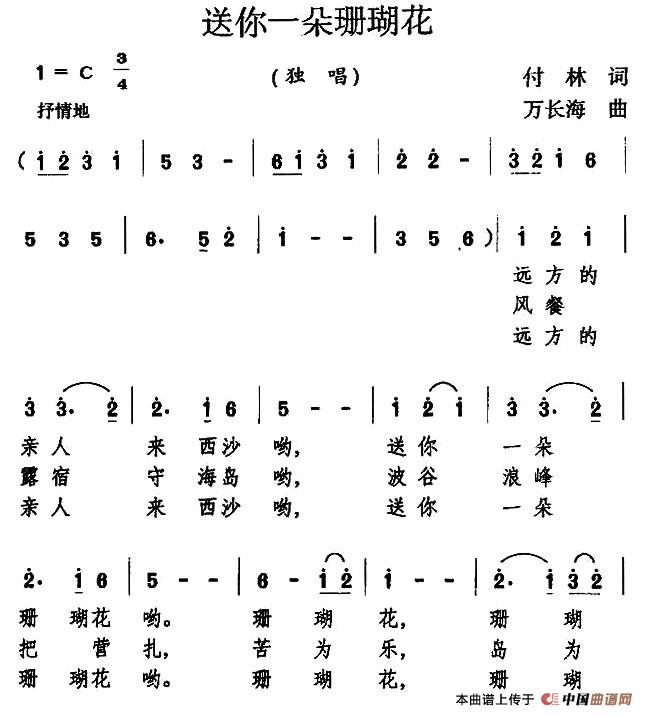 送你一朵珊瑚花
1 = C 3/4 (独 唱) 付 林 词
抒情地 万长海 曲
( i̲ 2̣̲̇ 3̇ i | 5 3 - | 6̲ i̲ 3̇ i | 2̇ 2̇ - | 3̲̇ 2̲̇ i 6 |
5 3 5 | 6. 5̲ 2̇ | i - - | 3 5 6 ) | i 2̇ i |
远 方 的
风 餐
远 方 的
3̇ 3̇. 2̲̇ | 2̇. i̲ 6 | 5 - - | i 2̇ i | 3̇ 3̇. 2̲̇ |
亲 人 来 西沙 哟, 送 你 一 朵
露 宿 守 海岛 哟, 波 谷 浪 峰
亲 人 来 西沙 哟, 送 你 一 朵
2̇. i̲ 6 | 5 - - | 6 - i̲ 2̲̇ | i - - | 2̇. i̲ 3̲̇ 2̲̇ |
珊 瑚花 哟。 珊 瑚 花, 珊 瑚
把 营 扎, 苦 为 乐, 岛 为
珊 瑚花 哟。 珊 瑚 花, 珊 瑚
本曲谱上传于 中国曲谱网